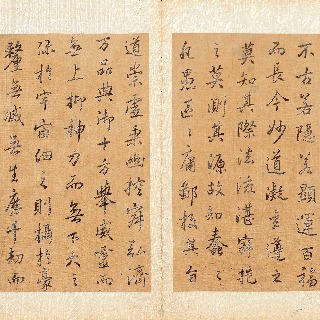 不古若隱若顯運百福
而長今妙道凝玄遵之
莫知其際法流湛寂挹
之莫測其源故知蠢々
凡愚區々庸鄙投其旨
道崇虛乘幽控寂弘濟
萬品典御十方舉威靈而
無上抑神力而無下大之
彌於宇宙細之則攝於豪
釐無滅無生歷千劫而